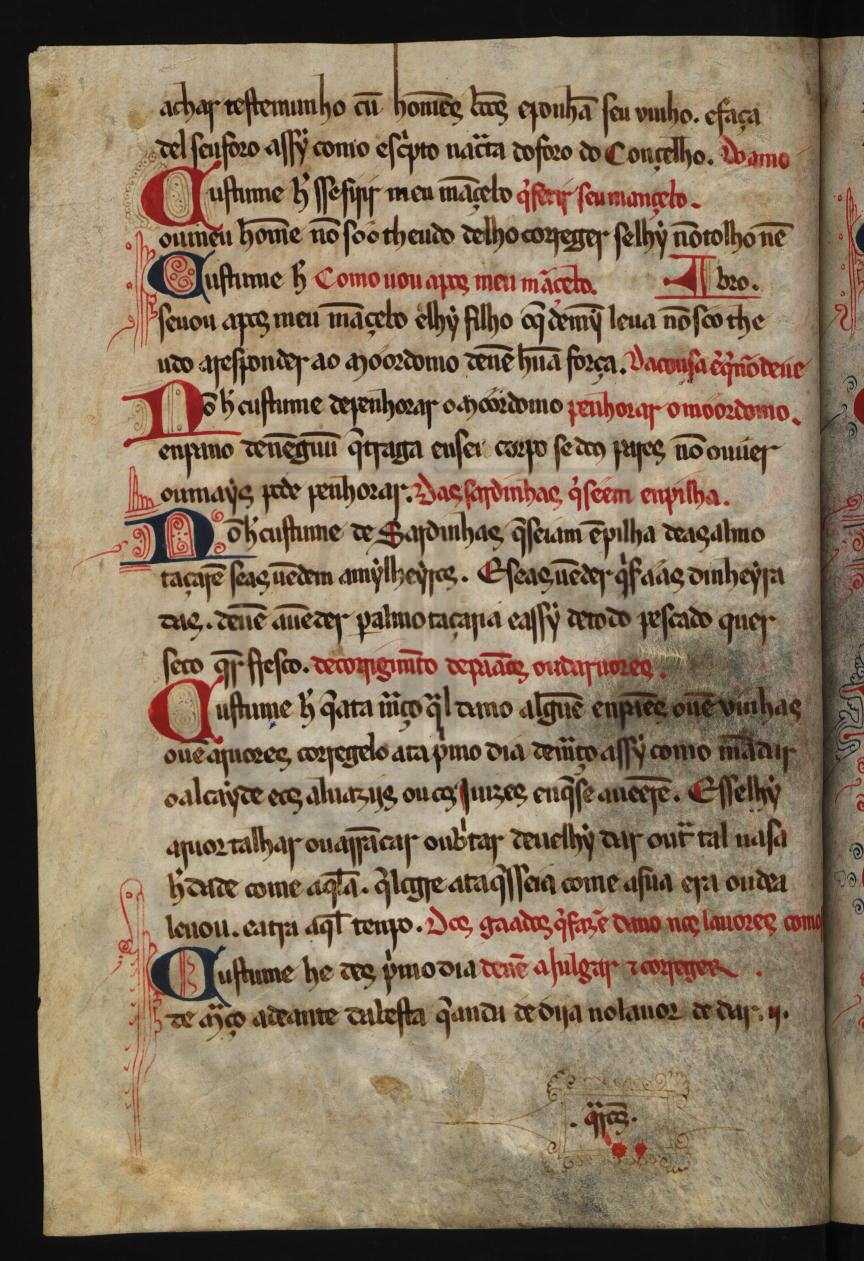 achar testemunho cũ homẽes bõos e ponhã seu vinho. e faça
del seu foro assy como escpto na cãta do foro do Conçelho. Do amo
Custume h̃ sse firir meu mãçebo q̃ ferir seu mançebo.
ou meu home nõ soo theudo delho correger se lhy nõ tolho nẽ
Custume h̃ Como vou apos meu mãcebo. nbro.
se vou apos meu mãçebo e lhy filho o q̃ de my̅ leua nõ soo the
udo a responder ao moordomo de nẽ hũa força. Da cousa ẽ q̃ nõ deue
Nõ h̃ custume de penhorar o moordomo penhorar o moordomo.
en pano de nẽguu q̃ traga en seu corpo se dos pares nõ ouuer
ou mays pode penhorar. Das sardinhas q̃ seem en pilha.
Nõ h̃ custume de Sardinhas q̃ seiam ẽ pilha de as almo
taçarẽ se as uẽdem a mylheyros. E se as uẽder q̃ faãs dinheyra
das. deuẽ a uẽder per almotaçaria e assy de todo pescado quer
seco q̃r fresco. de corrigimẽto de pãaes ou daruores.
Custume h̃ q̃ ata março q̃l dano alguẽ en pães ou ẽ vinhas
ou ẽ aruores corregelo ata pmo dia de março assy como mãdar
o alcayde e os aluazijs ou os Juizes en q̃ se aueerẽ. E sse lhy
aruor talhar ou arrãcar ou britar deue lhy dar outra tal na sa
h̃dade come aq̃la. q̃ logre ata q̃ sseia come a sua era ou dea
leuou. e atra aq̃l tenpo. Dos gaados q̃ fazẽ dano nos lauores como
Custume he dos pmo dia deuẽ a Julgar ⁊ correger
de março adeante da besta q̃ anda de dia no lauor de dar .ij.